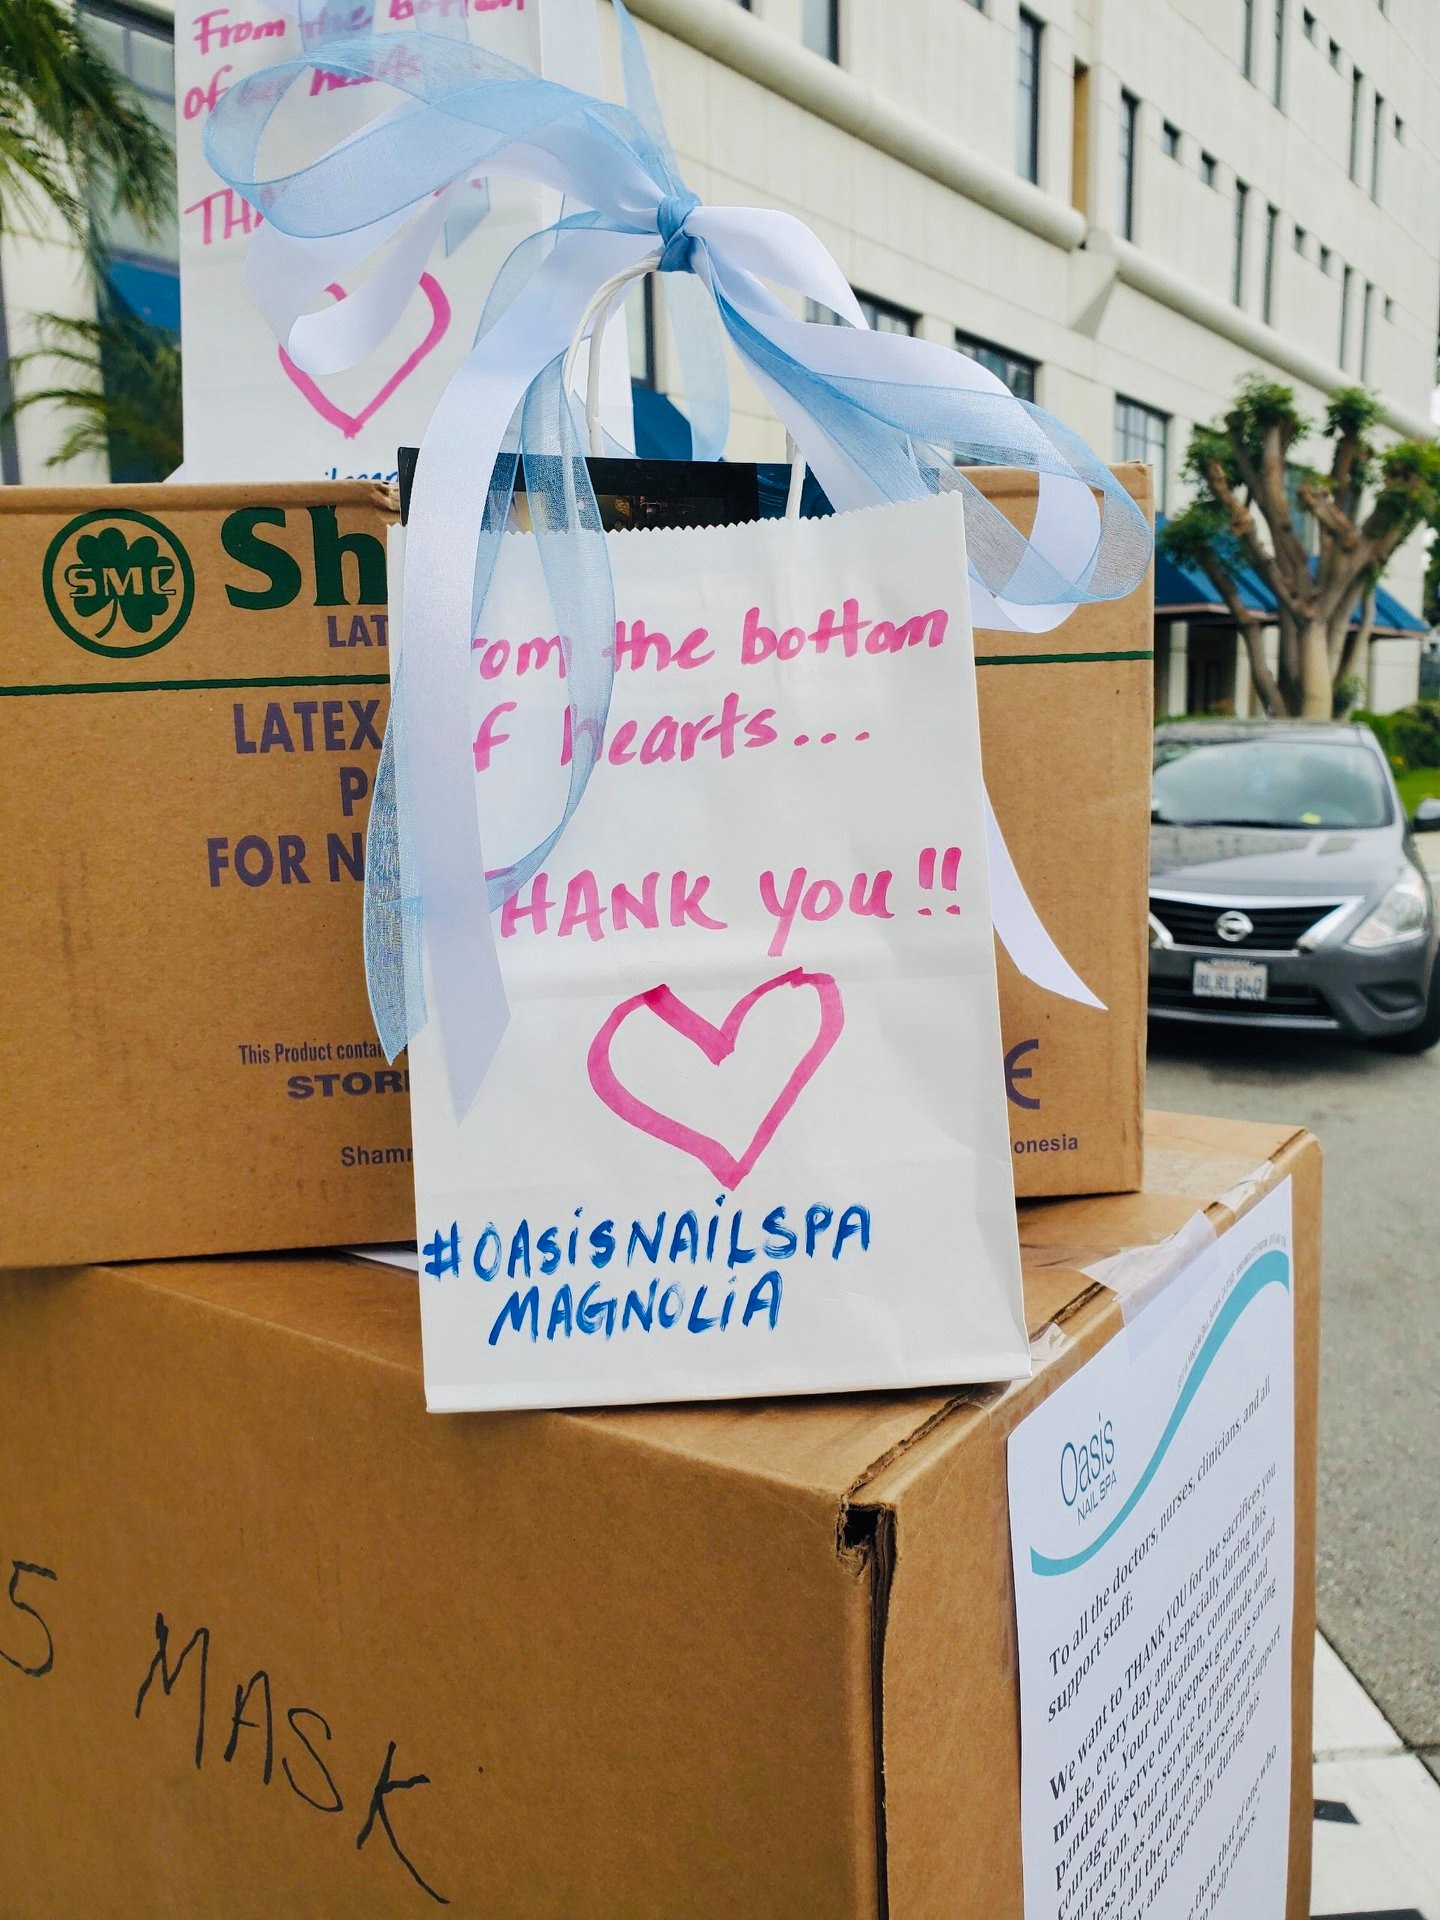 From the bottom
of our hearts
SMC
Sh
LAT
LATEX
P
FOR N
This Product contai
STOR
Sham
onesia
CE
rom the bottom
f hearts...
THANK you!!
#OASISNAILSPA
MAGNOLIA
5 MASK
Oasis
NAIL SPA
To all the doctors, nurses, clinicians, and all
support staff:
We want to THANK YOU for the sacrifices you
make, every day and especially during this
pandemic. Your dedication, commitment and
courage deserve our deepest gratitude and
miration. Your service to patients is saving
less lives and making a difference.
r all the doctors, nurses and support
y and especially during this
e than that of one who
o help others.